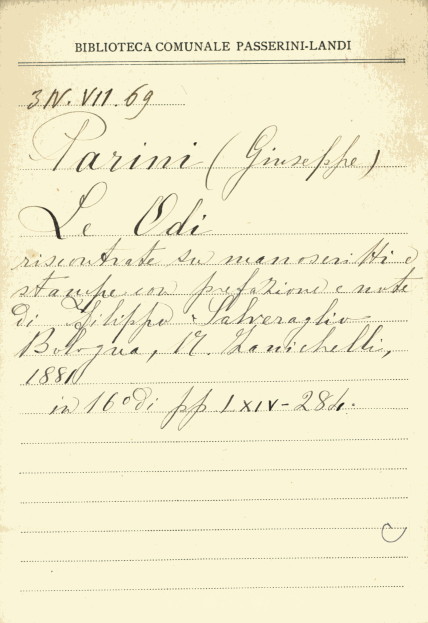 BIBLIOTECA COMUNALE PASSERINI-LANDI
3 IV. VII. 69
Parini (Giuseppe)
Le Odi
riscontrate su manoscritti e
stampe con prefazione e note
di Filippo Salveraglio
Bologna, N. Zanichelli,
1881
in 16º di pp LXIV-284.